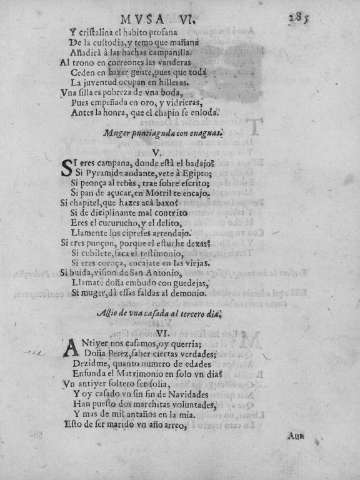 MVSA VI. 285
Y cristalina el habito profana
De la custodia, y temo que mañana
Añadirà à las hachas campanilla.
Al trono en correones las vanderas
Ceden en hazer gente, pues que toda
La juventud ocupan en hilleras.
Vna silla es pobreza de vna boda,
Pues empeñada en oro, y vidrieras,
Antes la honra, que el chapin se enloda.
Muger puntiaguda con enaguas.
V.
SI eres campana, donde està el badajo?
Si Pyramide andante, vete à Egipto;
Si peonça al rebès, trae sobre escrito;
Si pan de açucar, en Motril te encajo.
Si chapitel, que hazes acà baxo?
Si de diciplinante mal contrito
Eres el cucurucho, y el delito,
Llamente los cipreses arrendajo.
Si eres punçon, porque el estuche dexas?
Si cubilete, saca el testimonio,
Si eres coroça, encajate en las viejas.
Si buida, vision de San Antonio,
Llamate doña embudo con guedejas,
Si muger, dà essas faldas al demonio.
Assio de vna casada al tercero dia.
VI.
ANtiyer nos casamos, oy querria;
Doña Perez, saber ciertas verdades;
Dezidme, quanto numero de edades
Enfunda el Matrimonio en solo vn dia?
Vn antiyer soltero ser solia,
Y oy casado vn sin fin de Navidades
Han puesto dos marchitas voluntades,
Y mas de mil antaños en la mia.
Esto de ser marido vn año arreo,
Aun